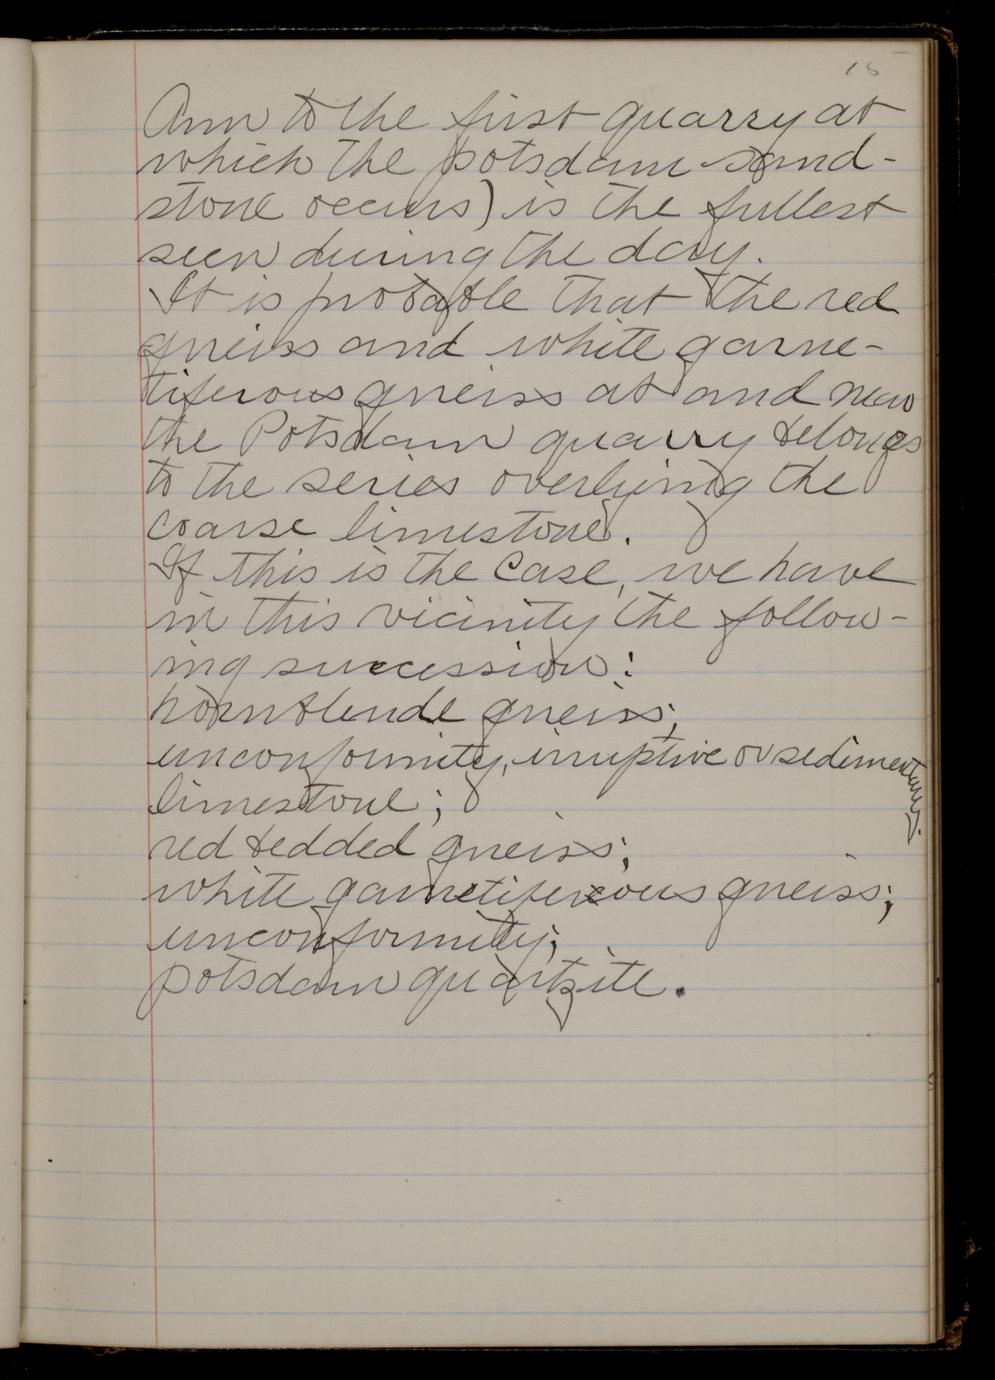 15
Ann to the first quarry at
which the potsdam sand-
stone occurs) is the fullest
seen during the day.
It is probable that the red
gneiss and white garne-
tiferous gneiss at and near
the Potsdam quarry belongs
to the series overlying the
coarse limestone.
If this is the case, we have
in this vicinity the follow-
ing succession:
hornblende gneiss;
unconformity, irruptive or sedimentary;
limestone;
red bedded gneiss;
white garnetiferous gneiss;
unconformity;
potsdam quartzite.